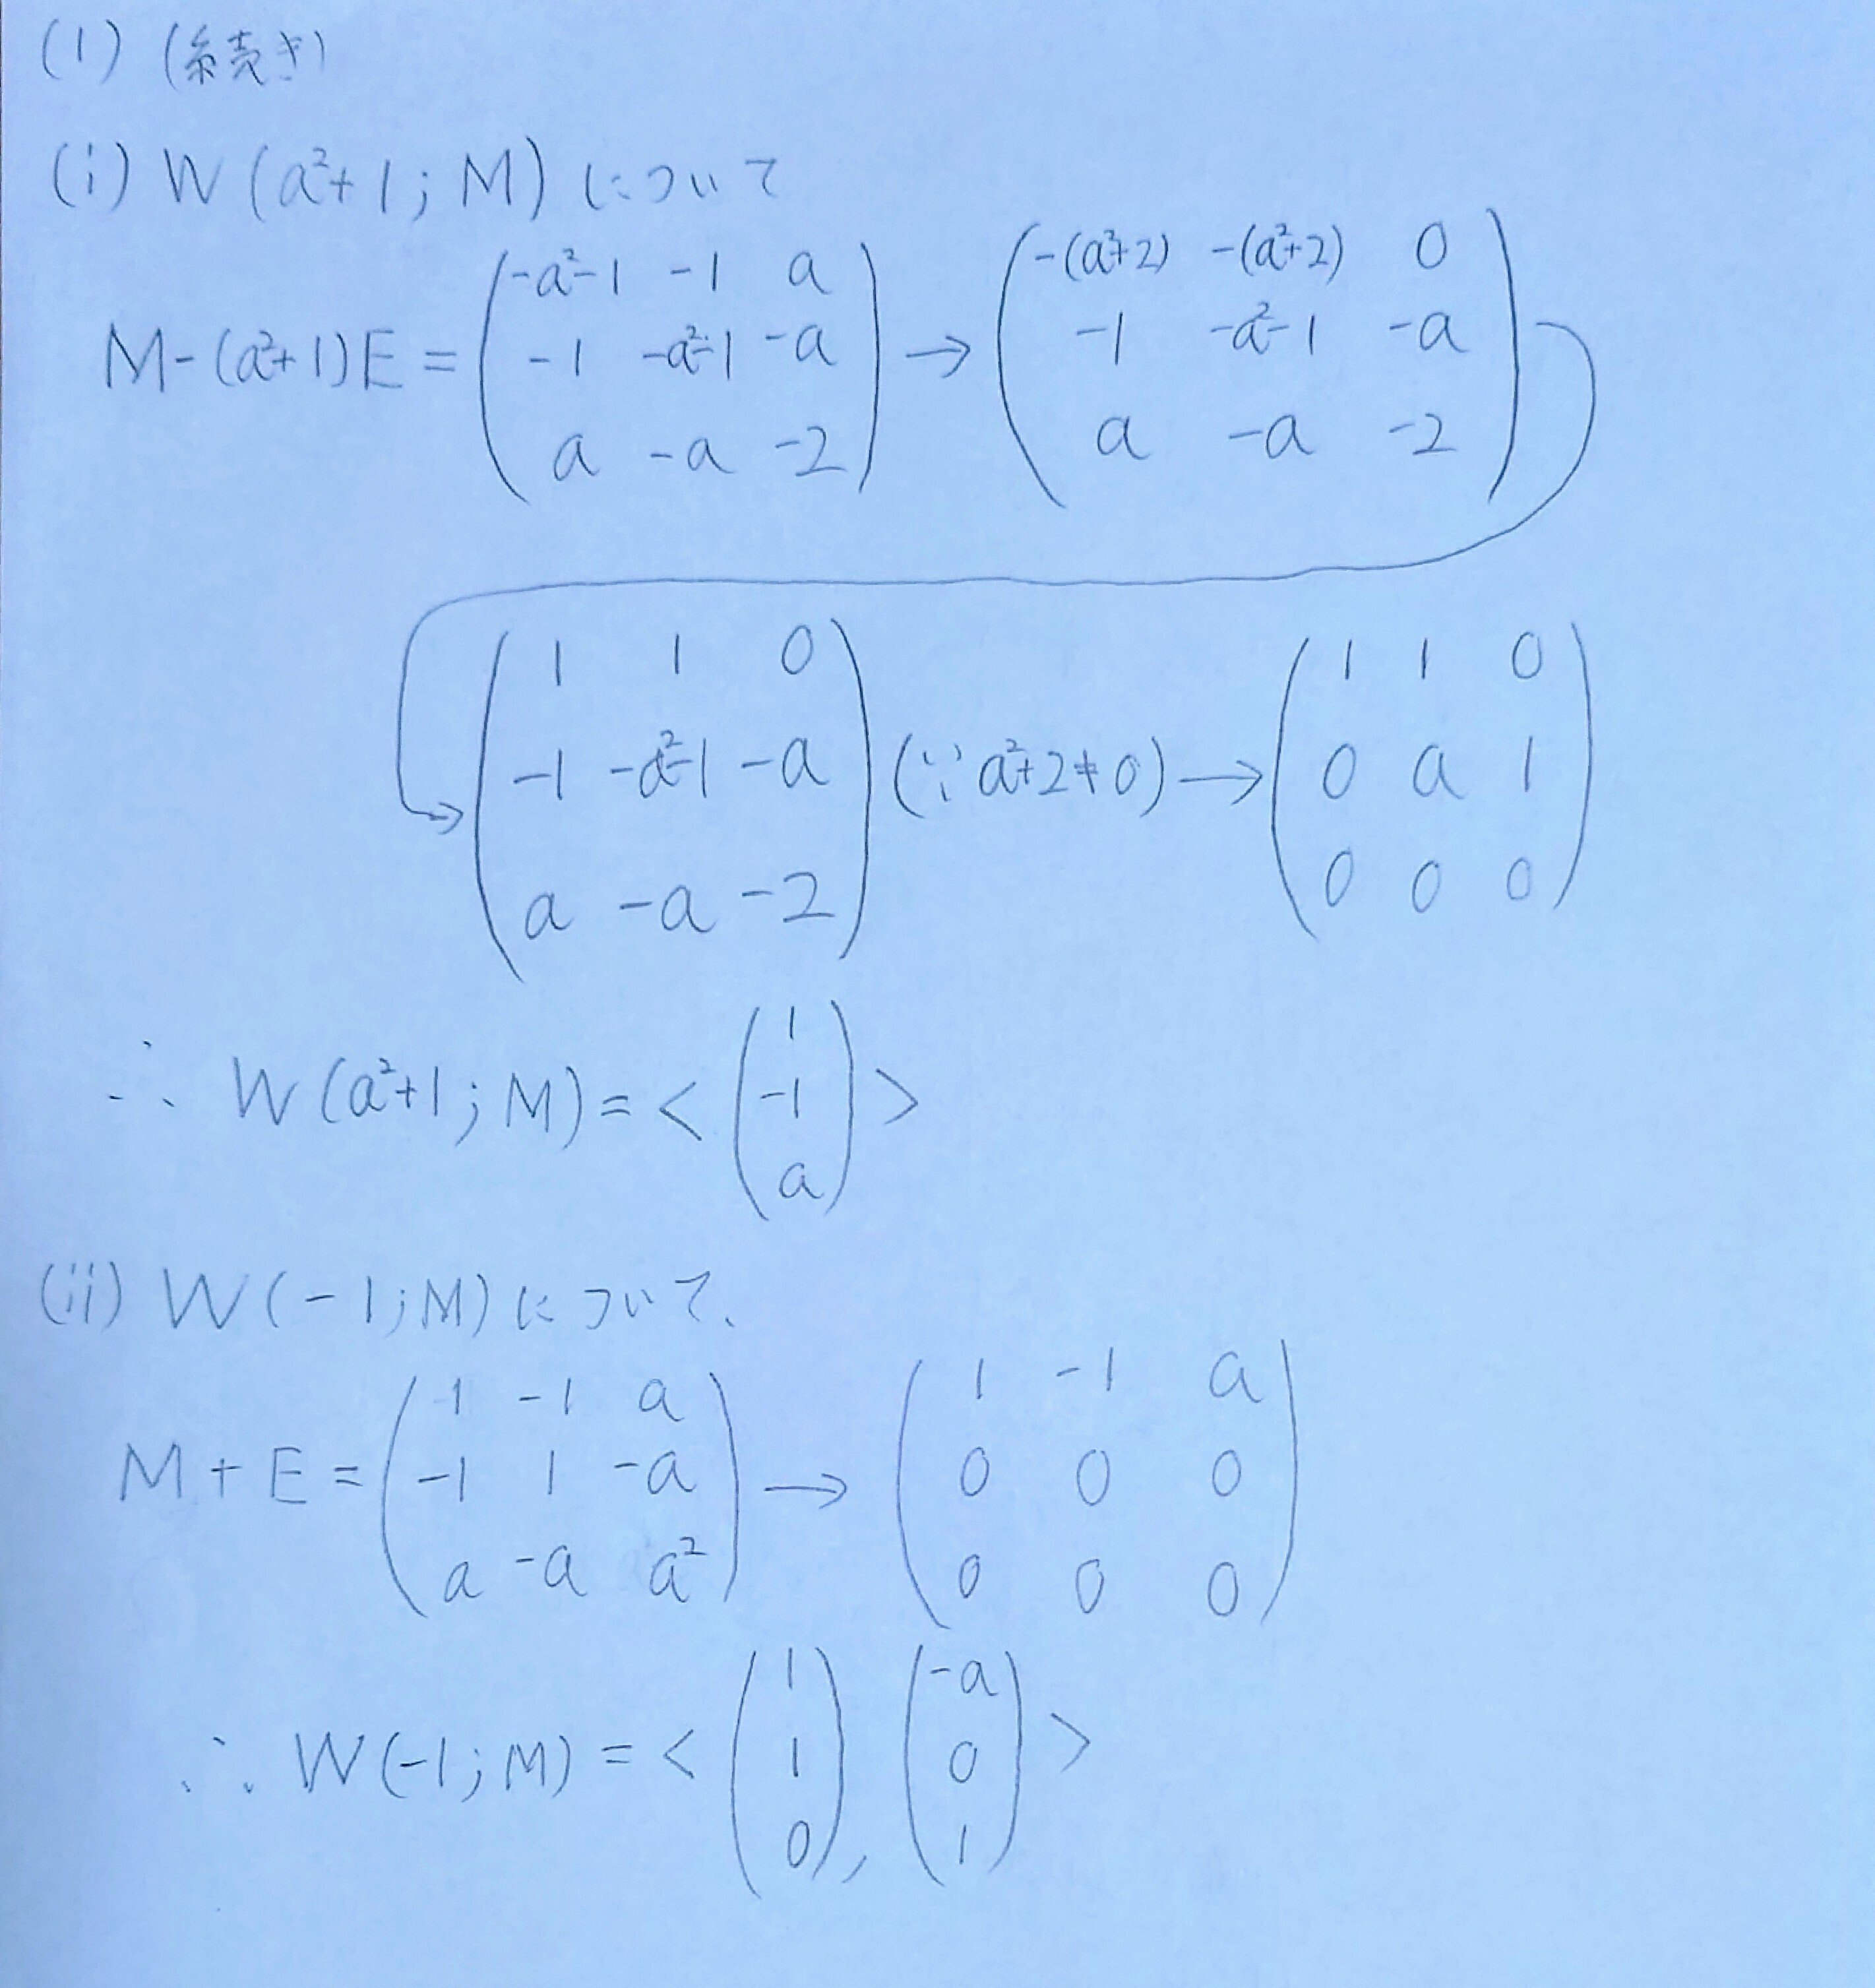 (1) (続き)
(i) W(a²+1; M) について
M-(a²+1)E = \begin{pmatrix} -a²-1 & -1 & a \\ -1 & -a²-1 & -a \\ a & -a & -2 \end{pmatrix} → \begin{pmatrix} -(a²+2) & -(a²+2) & 0 \\ -1 & -a²-1 & -a \\ a & -a & -2 \end{pmatrix}
→ \begin{pmatrix} 1 & 1 & 0 \\ -1 & -a²-1 & -a \\ a & -a & -2 \end{pmatrix} (∵ a²+2≠0) → \begin{pmatrix} 1 & 1 & 0 \\ 0 & a & 1 \\ 0 & 0 & 0 \end{pmatrix}
∴ W(a²+1; M) = < \begin{pmatrix} 1 \\ -1 \\ a \end{pmatrix} >
(ii) W(-1; M) について、
M+E = \begin{pmatrix} 1 & -1 & a \\ -1 & 1 & -a \\ a & -a & a² \end{pmatrix} → \begin{pmatrix} 1 & -1 & a \\ 0 & 0 & 0 \\ 0 & 0 & 0 \end{pmatrix}
∴ W(-1; M) = < \begin{pmatrix} 1 \\ 1 \\ 0 \end{pmatrix}, \begin{pmatrix} -a \\ 0 \\ 1 \end{pmatrix} >